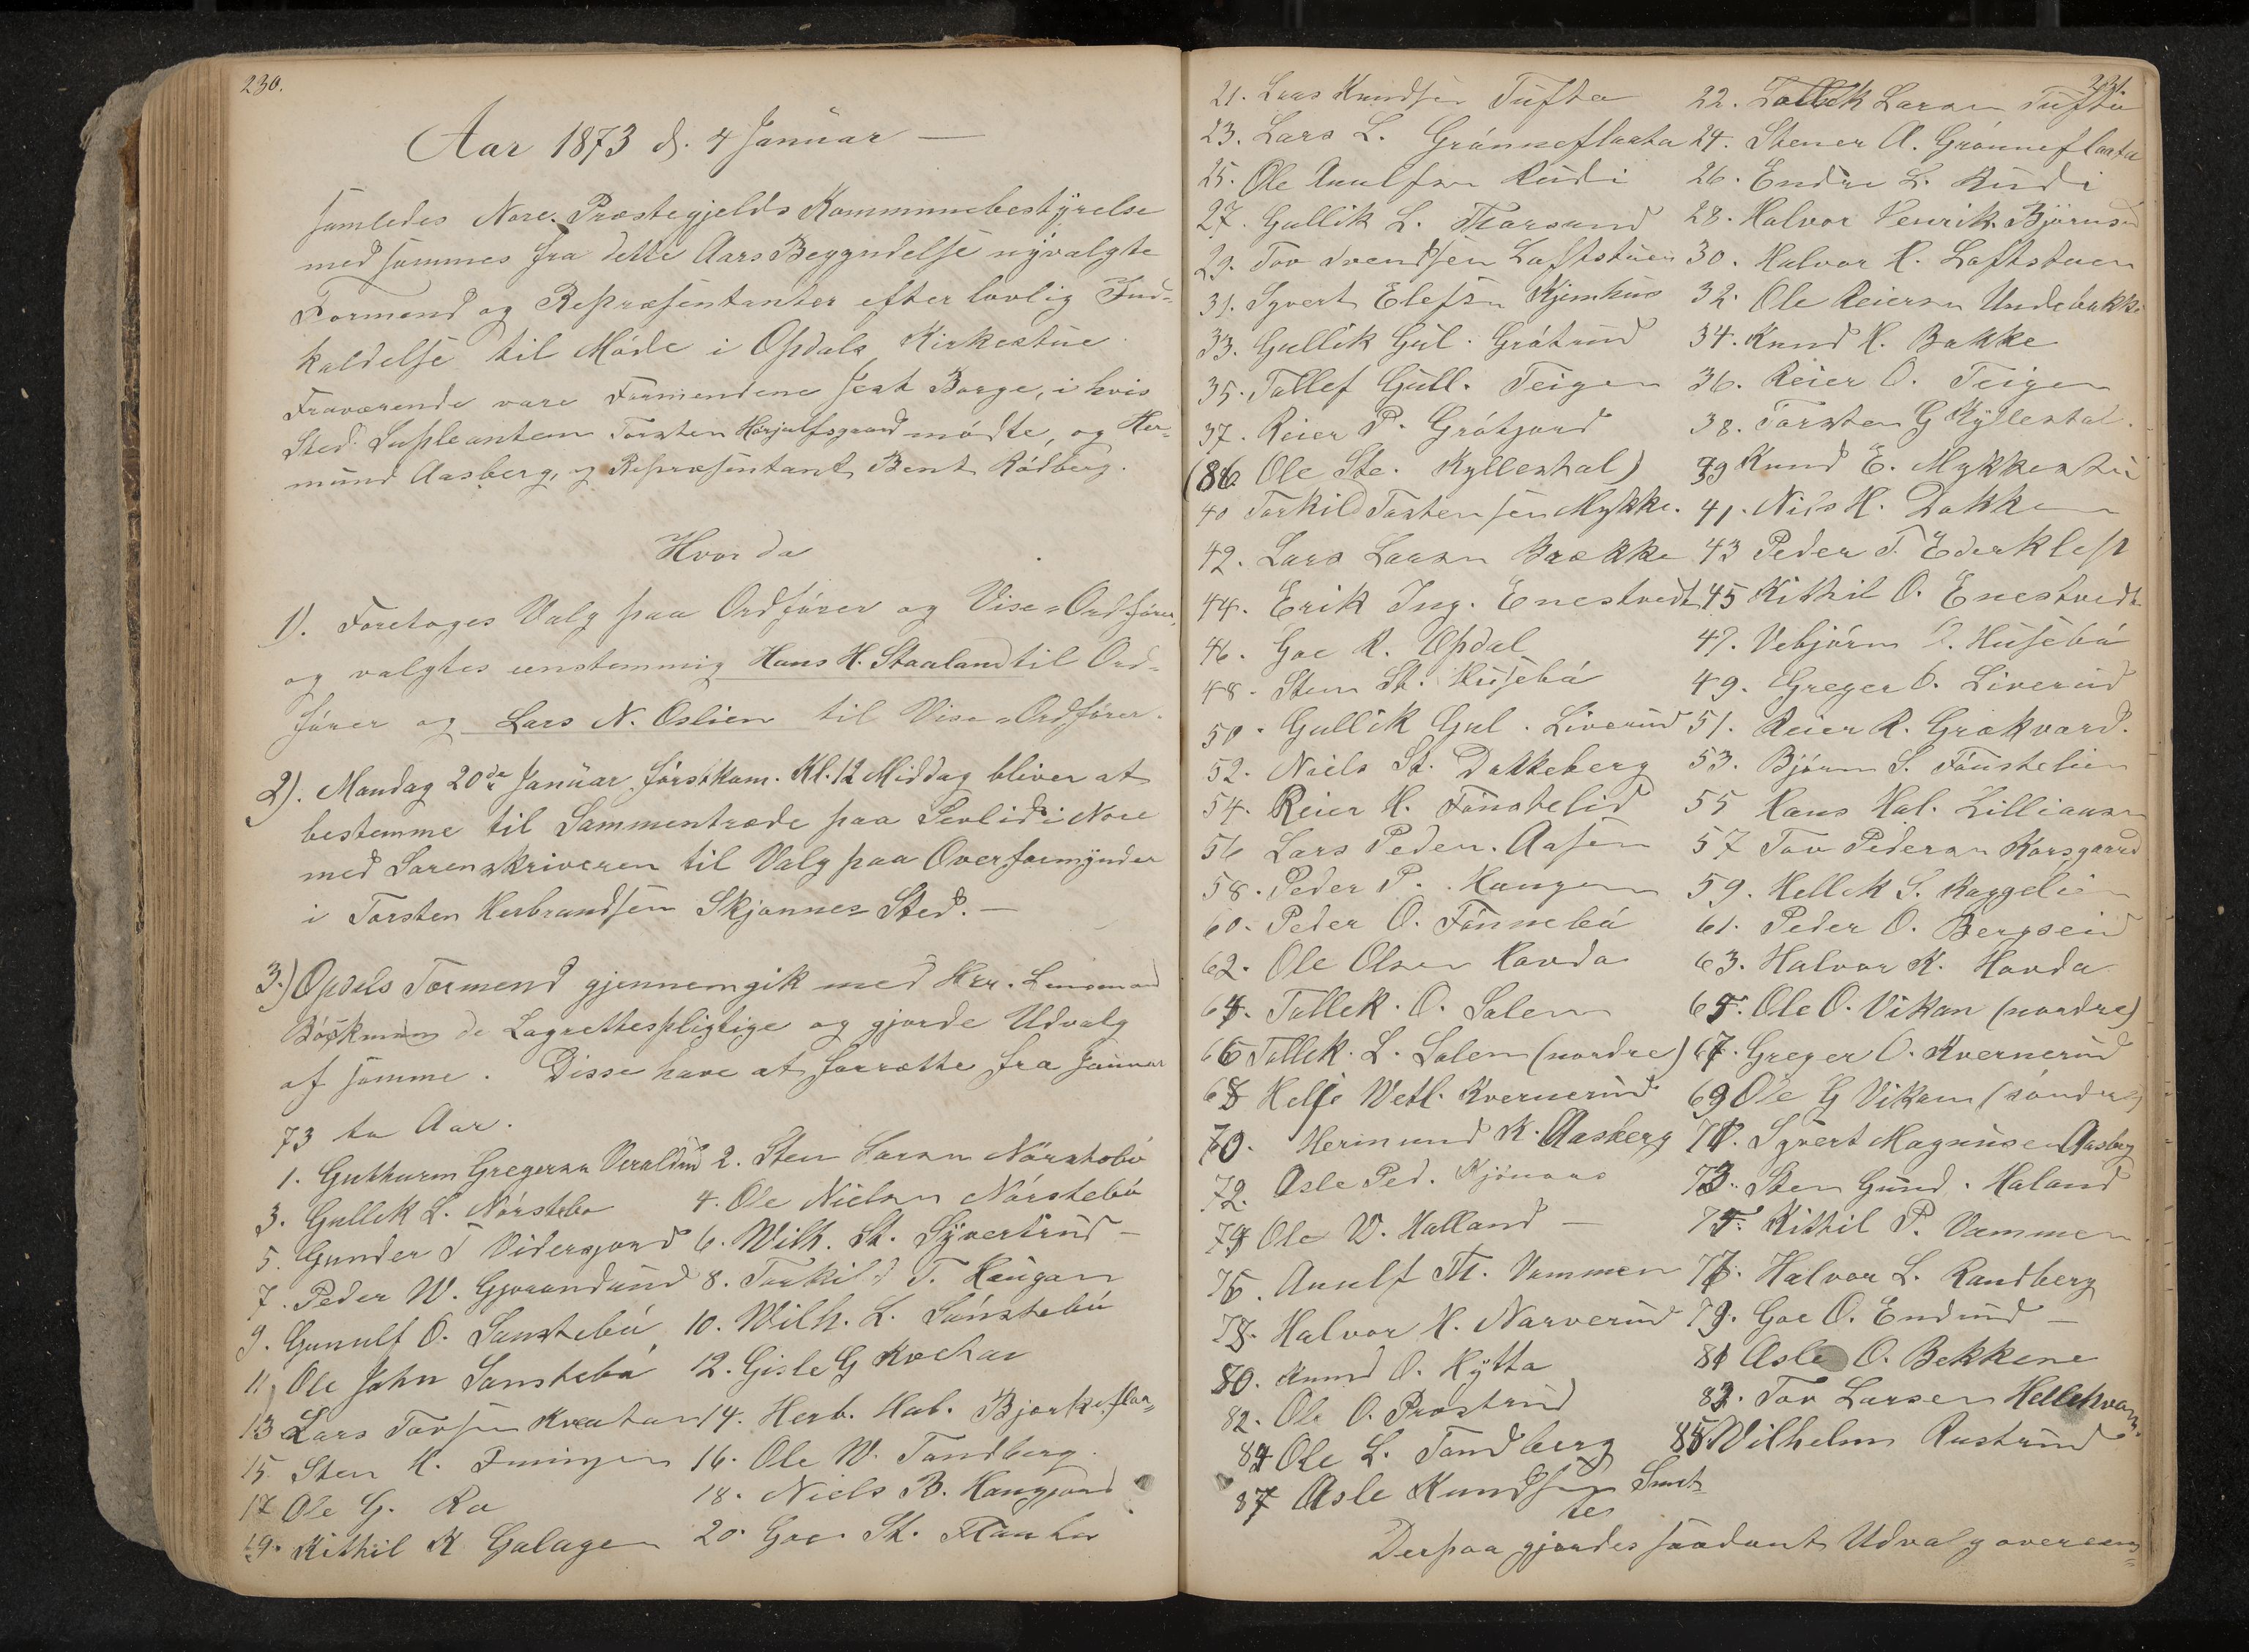 230.
Aar 1873 d. 4 Januar —
samledes Nore Præstegjelds Kommunebestyrelse
med sammes fra dette Aars Begyndelse nyvalgte
Formend og Repræsentanter efter lovlig Ind-
kaldelse til Møde i Opdals Kirkestue.
Fraværende vare Formendene Jent Borge, i hvis
Sted Supleanten Torsten Hørjulfsgaard mødte, og Her-
mund Aasberg, og Repræsentant Bent Rødberg.
Hvor da
1). Foretoges Valg paa Ordfører og Vise-Ordfører,
og valgtes eenstemmig Hans H. Staaland til Ord-
fører og Lars N. Oslien til Vise-Ordfører.
2). Mandag 20de Januar førstkom. Kl. 12 Middag bliver at
bestemme til Sammentræde paa Sevlid i Nore
med Sorenskriveren til Valg paa Overformynder
i Torsten Herbrandsen Skjønnes Sted. —
3.) Opdals Formend gjennemgik med Hr. Lensmand
Bøckman de Lagrettespligtige og gjorde Udvalg
af samme. Disse have at forrette fra Januar
73 to Aar.
1. Guthurm Gregersen 2. Sten Larsen Nørstebø
3. Gullek L. Nørstebø 4. Ole Nielsen Nørstebø
5. Gunder T Vidersjord 6. Wilh. St. Syvertrud —
7. Peder W. Gjorandrud 8. Torkild T. Haugan
9. Gunulf O. Sønstebø 10. Wilh. L. Sønstebø
11. Ole John Sønstebø 12. Gisle G Kvehar
13 Lars Tovsen 14. Herb. Hal. Bjørkeflaa-
15. Sten K. 16. Ole W. Tandberg.
17 Ole G. Ro 18. Niels B. Haugjord
19. Kithil K Galagen 20. Goe St.
231.
21. Lars Knudsen Tufta 22. Tollek Larsen Tufta
23. Lars L. Grønneflaata 24. Stener A. Grønneflaata
25. Ole Anulfsen Rudi 26. Endre L. Rudi
27. Gullik L. Thorsrud 28. Halvor Henrik. Bjørnsrud
29. Tov Svendsen Loftstuen 30. Halvor H. Loftstuen
31. Syvert Elefsen Kjemhus 32. Ole Reiersen Undebakke
33. Gullik Gul. Grøtrud 34. Knud H. Bakke
35. Tollef Gull. Teigen 36. Reier O. Teigen
37. Reier P. Grøtjord 38. Torsten G Kyllestal.
(86 Ole Ste. Kyllestal) 39 Knud E. Mykkestu
40 Torkild Tostensen Mykke. 41. Nils H. Dokken
42. Lars Larsen Brække 43 Peder T. Ederklep
44. Erik Ing. Enestvedt 45 Kithil O. Enestvedt
46. Goe R. Opdal 47. Vebjørn O. Husebø
48. Sten St. Husebø 49. Greger O. Liverud
50. Gullik Gul. Liverud 51. Reier R. Grækvard.
52. Niels St. Dokkeberg 53. Bjørn S. Fønstelien
54. Reier H. Fønstelid 55 Hans Hal. Lilliaasen
56 Lars Peder. Aasen 57 Tov Pedersen Korsgaard
58. Peder P. Haugen 59. Hellek S. Raggelien
60. Peder O. Fønnebø 61. Peder O. Bergseid
62. Ole Olsen Hovda 63. Halvor K. Hovda
64. Tollek. O. Solem 65. Ole O. Vikan (nordre)
66 Tollek. L. Solem (nordre) 67. Greger O. Kvernerud
68 Helje Wetl. Kvernerud 69 Ole G Vikan (søndre)
70. Hermund K. Aasberg 71. Syvert Magnusen Aasberg
72. Osle Ped. Kjønaas 73. Sten Gund. Haland
74 Ole W. Halland — 75. Kithil P. Vammen
76. Anulf Th. Vammen 77. Halvor L. Randberg
78. Halvor H. Narverud 79. Goe O. Endrud —
80. Knud O. Hytta 81 Asle O. Bekkene
82. Ole O. Prestrud 83. Tov Larsen
84 Ole L. Tandberg 85 Wilhelm Rustrud
87 Asle Knudsen Smut-
tes
Derpaa gjordes saadant Udvalg overeens-